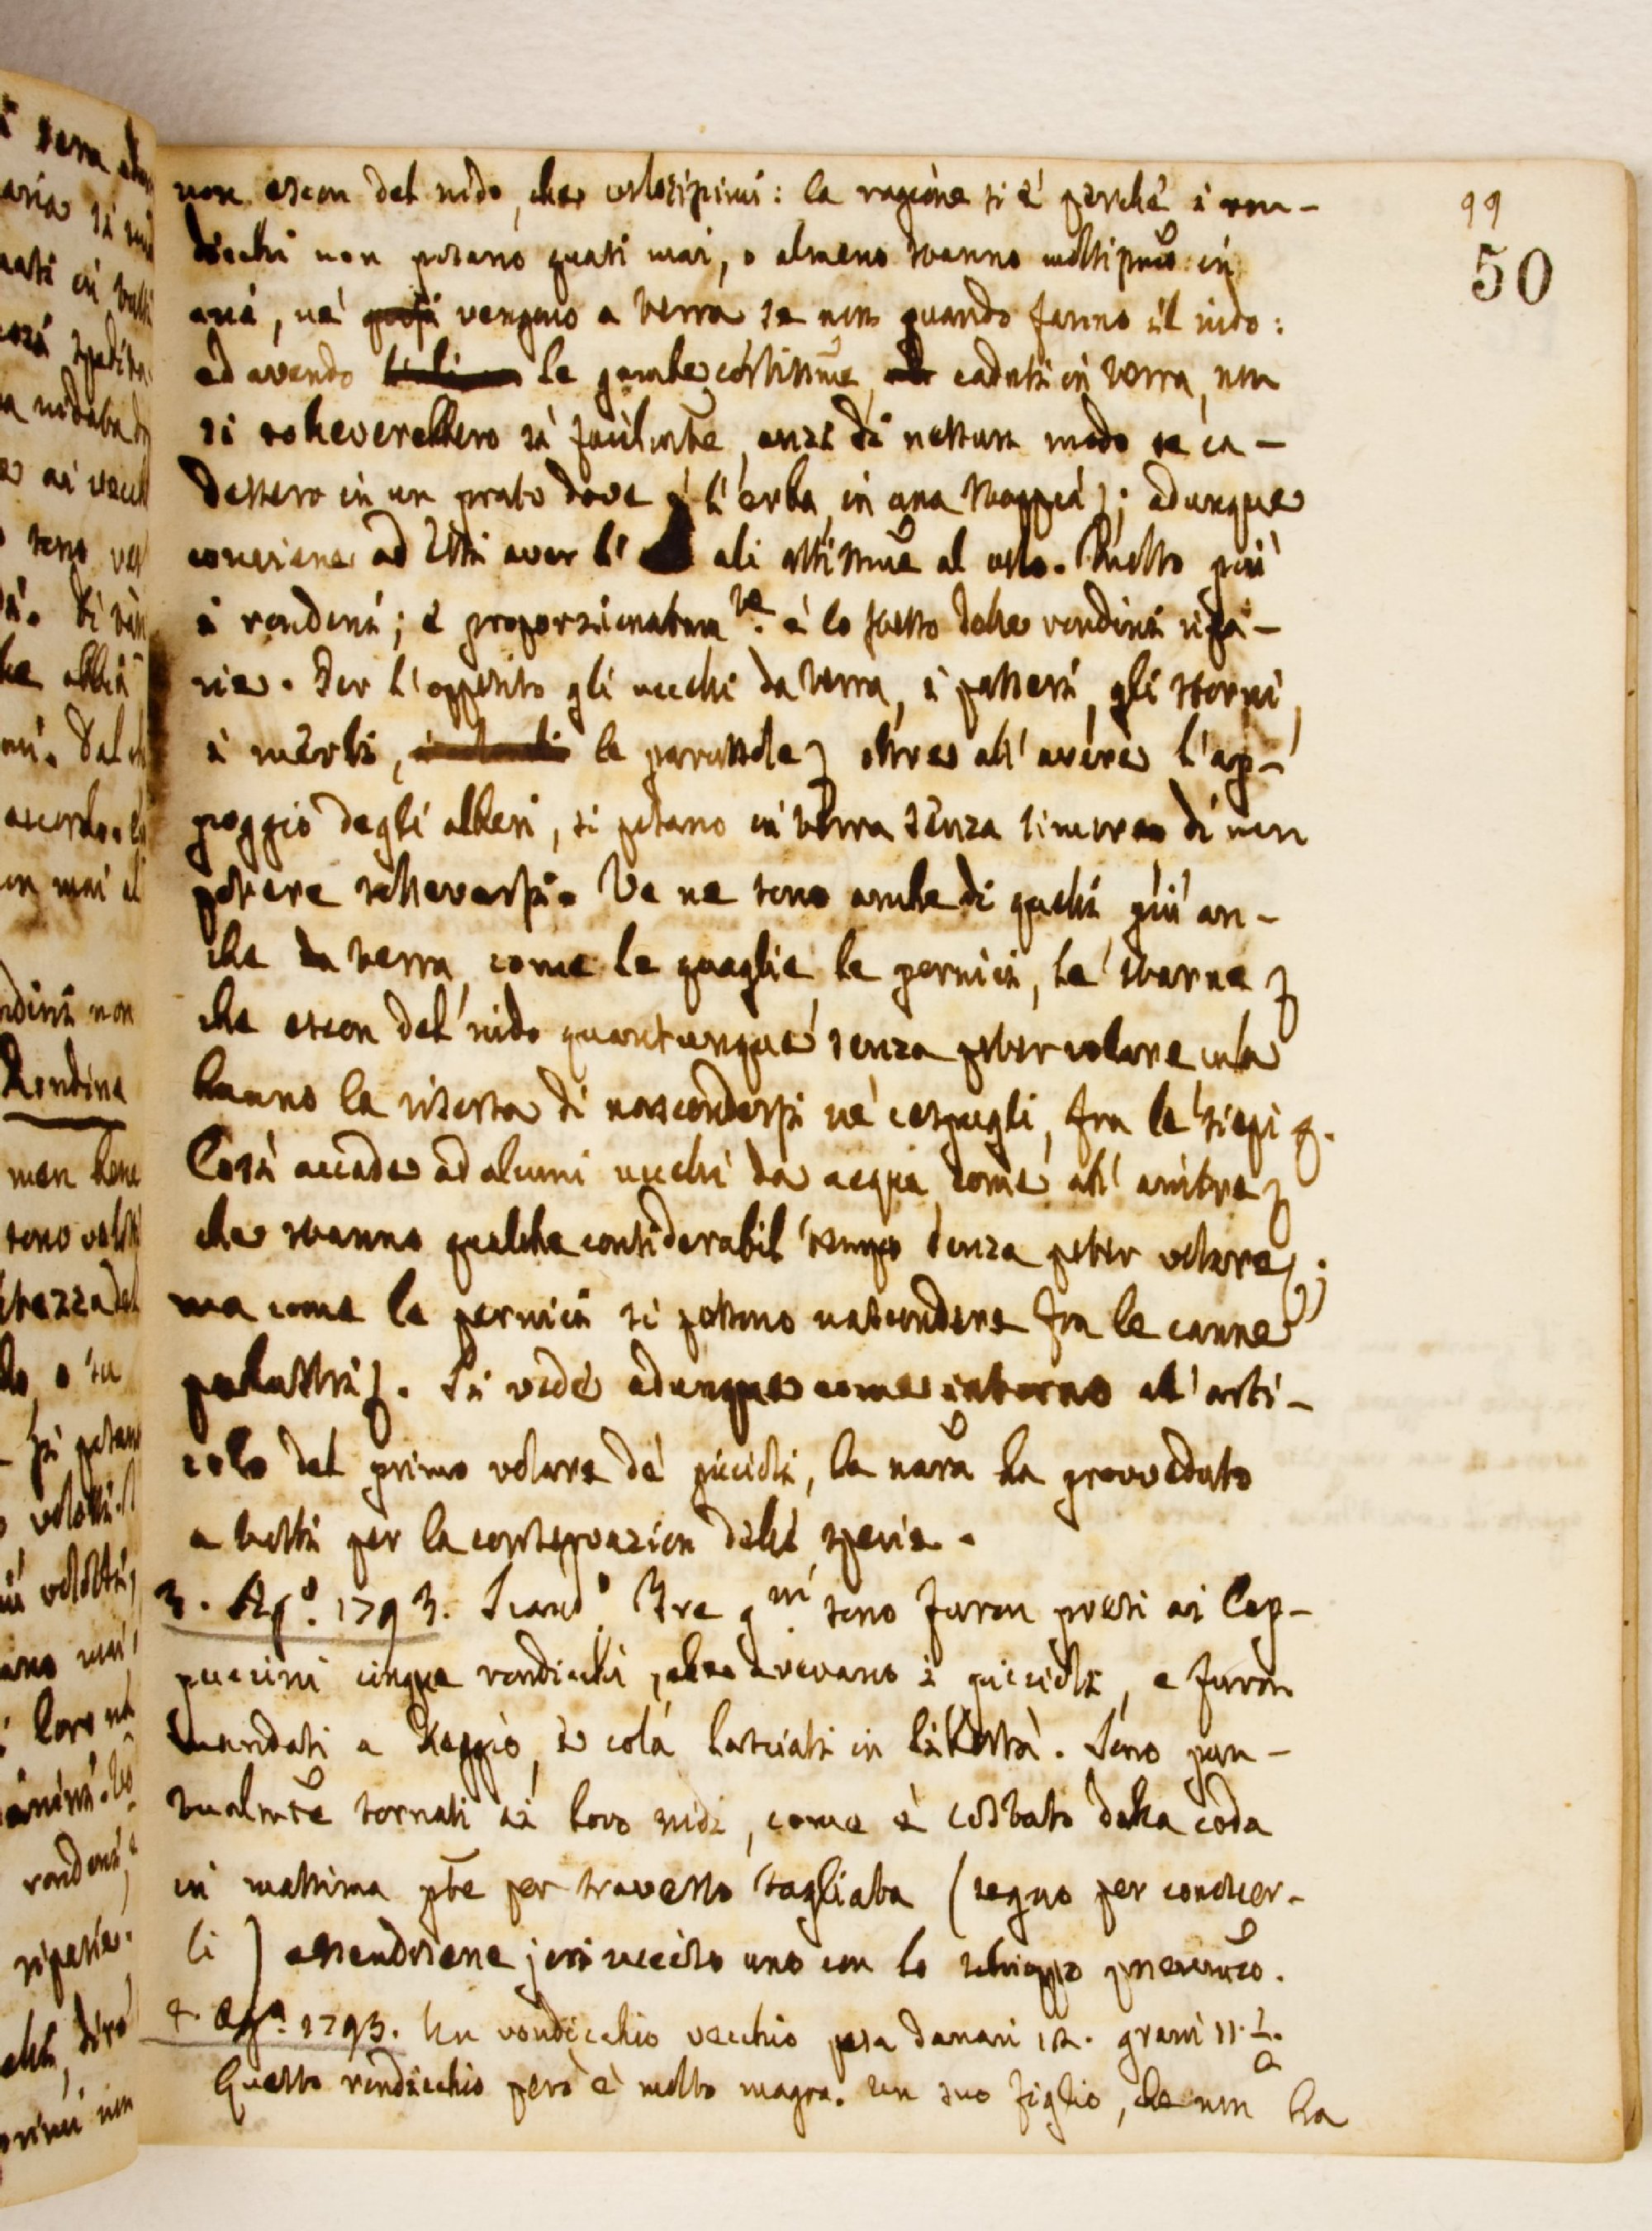 99
50
non escon del nido, che velocissimi: la ragione si è perché i ron-
dicchi non posano quasi mai, o almeno stanno moltissimo in
aria, né vengono a terra se non quando fanno il nido:
ed avendo le gambe cortissime, caduti in terra, non
si solleverebbero sì facilmte, anzi di nessun modo se ca-
dessero in un prato dove è l'erba, in una stoppia; adunque
conviene ad essi aver l' ali attissme al volo. Quello più
i rondoni; e proporzionatamte. è lo stesso delle rondini ripa-
rie. Per l'opposito gli uccelli da terra, i passeri, gli storni,
i merli, le parussole oltre all'avere l'ap-
poggio degli alberi, si posano in terra senza timore di non
potere sollevarsi. Ve ne sono anche di quelli più an-
che da terra, come le quaglie, le pernici, le starne
che escon del nido quantunque senza poter volare, ma
hanno la risorsa di nascondersi ne' cespugli, fra le siepi
Così accade ad alcuni uccelli da acqua, come all' anitre
che stanno qualche considerabil tempo senza poter volare;
ma come le pernici si possono nascondere fra le canne
palustri. Si vede adunque come intorno all'arti-
colo del primo volare de' piccioli, la nara ha provveduto
a tutti per la conservazion delle specie.
3. Ago. 1793. Scando. Tre gni. sono furon presi ai Cap-
puccini cinque rondicchi, che avevano i piccioli, e furon
mandati a Reggio, e colà lasciati in libertà. Sono pun-
tualmte tornati ai loro nidi, come è costato dalla coda
in massima pte per traverso tagliata (segno per conoscer-
li) essendosene jeri ucciso uno con lo schioppo pneumco.
4. Ago. 1793. Un rondicchio vecchio pesa danari 12. grani 11. 1/2.
Questo rondicchio però è molto magro. Un suo figlio, che non ha